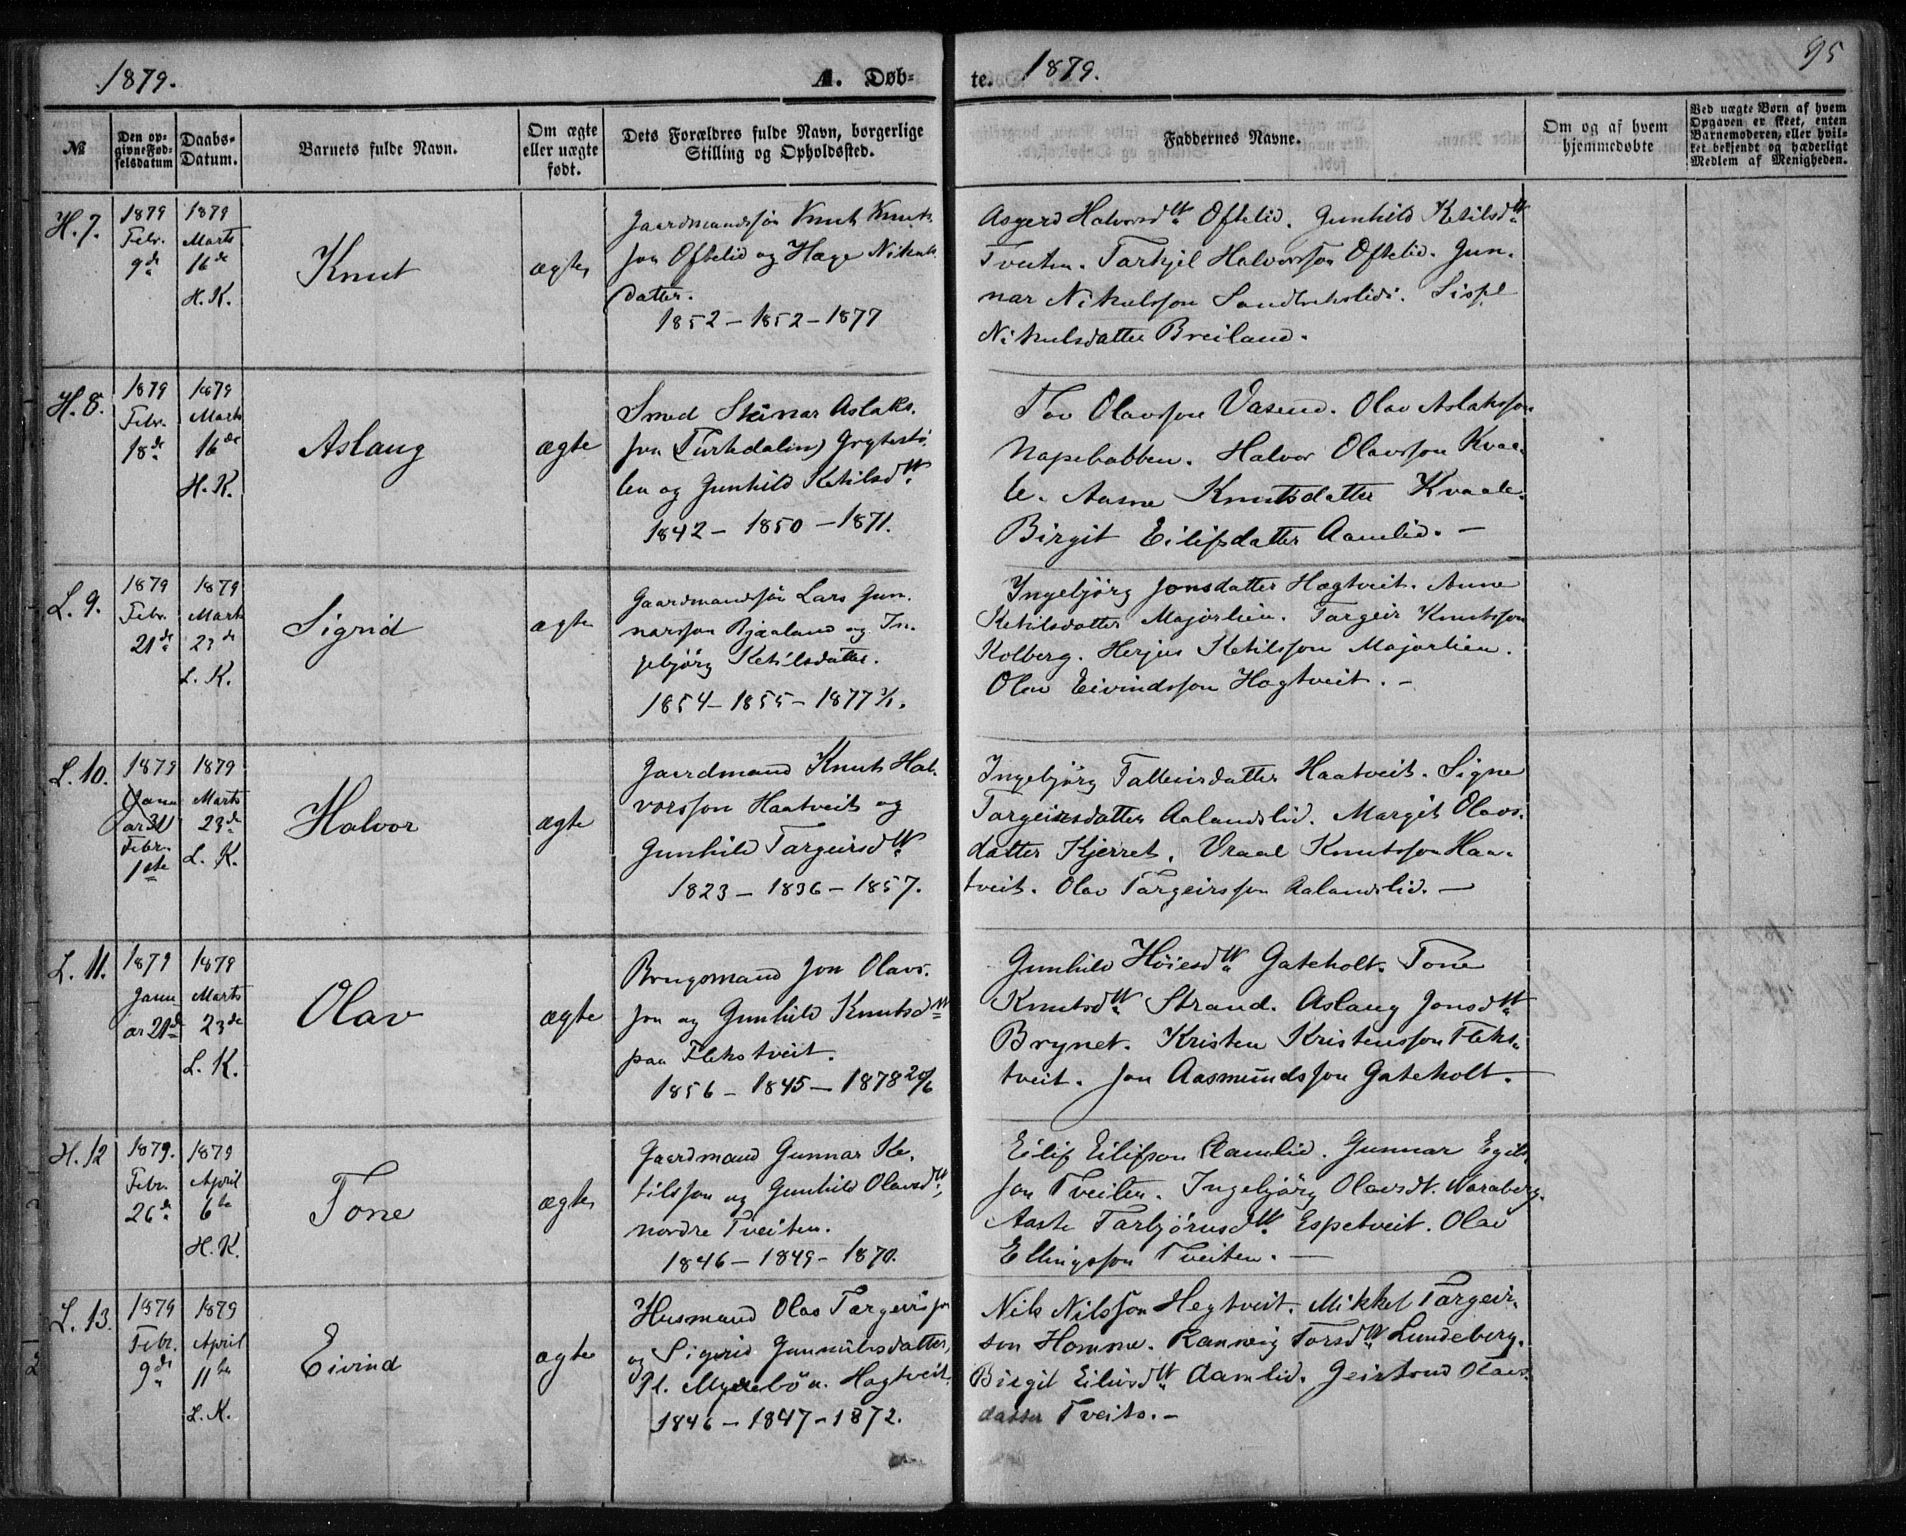 1879.
A. Døb-
te.
1879.
95
№
Den op-
givne Fød-
selsdatum
Daabs-
Datum.
Barnets fulde Navn.
Om ægte
eller uægte
født.
Dets Forældres fulde Navn, borgerlige
Stilling og Opholdssted.
Faddernes Navne.
Om og af hvem
hjemmedøbte
Ved uægte Børn af hvem
Opgaven er skeet, enten
Barnemoderen, eller hvil-
ket bekjendt og hæderligt
Medlem af Menigheden.
H. 7.
1879
Febr.
9de
1879
Marts
16de
H. K.
Knut
ægte
Gaardmandssøn Knut Knuts-
son Oftelid og Hæge Nikuls
datter.
1852 – 1852 – 1877
Asgerd Halvorsdtr Oftelid. Gunhild Ketilsdtr
Tveiten. Tarkjel Halvorsson Oftelid. Gun-
nar Nikulsson
Nikulsdatter Breiland.
H. 8.
1879
Febr.
18de
1879
Marts
16de
H. K.
Aslaug
ægte
Smed Steinar Aslaks-
son (Turkdalin) Grytestø-
len og Gunhild Ketilsdtr
1842 – 1850 – 1871.
Tov Olavsson Vasend. Olav Aslaksson
Napebabben. Halvor Olavsson Kvaa-
le. Aasne Knutsdatter Kvaale.
Birgit Eilifsdatter Aamlid. –
L. 9.
1879
Febr.
21de
1879
Marts
23de
L. K.
Sigrid
ægte
Gaardmandssøn Lars Gun-
narsson Bjaaland og In-
gebjørg Ketilsdatter.
1854 – 1855 – 1877 3/1.
Ingebjørg Jonsdatter Hægtveit. Anne
Ketilsdatter Majorlien. Targeir Knutsson
Kolberg. Herjus Ketilsson Majorlien.
Olav Eivindsson Hægtveit. –
L. 10.
1879
Janu
ar 31
Febr.
1ste
1879
Marts
23de
L. K.
Halvor
ægte
Gaardmand Knut Hal-
vorsson Haatveit og
Gunhild Targeirsdtr
1823 – 1836 – 1857.
Ingebjørg Talleivsdatter Haatveit. Signe
Targeirsdatter Aalandslid. Margit Olavs-
datter Kjerret. Vraal Knutsson Haa-
tveit. Olav Targeirsson Aalandslid. –
L. 11.
1879
Janu
ar 21de
1879
Marts
23de
L. K.
Olav
ægte
Brugsmand Jon Olavs-
son og Gunhild Knutsdtr
paa Flekstveit.
1856 – 1845 – 1878 20/6
Gunhild Høiesdtr Gateholt. Tone
Knutsdtr Strand. Aslaug Jonsdtr
Brynet. Kristen Kristensson Fleks-
tveit. Jon Aasmundsson Gateholt. –
H. 12
1879.
Febr.
26de
1879
April
6te
H. K.
Tone
ægte
Gaardmand Gunnar Ke-
tilsson og Gunhild Olavsdtr,
nordre Tveiten.
1846 – 1849 – 1870.
Eilif Eilifson Aamlid. Gunnar Egils-
son Tveiten. Ingebjørg Olavsdt. Naraberg.
Aaste Tarbjørnsdtr Espetveit. Olav
Ellingsson Tveiten. –
L. 13.
1879
Febr.
9de
1879
April
11te
L. K.
Eivind
ægte
Husmand Olav Targeirsson
og Sigrid Gunnulvsdatter,
Pl. Myrebøn. Hægtveit
1846 – 1847 – 1872.
Nils Nilsson Hegtveit. Mikkel Targeir-
son Homme. Ranveig Torsdtr Lundeberg.
Birgit Eilivsdtr Aamlid. Geirtrud Olavs-
datter Tveito. –